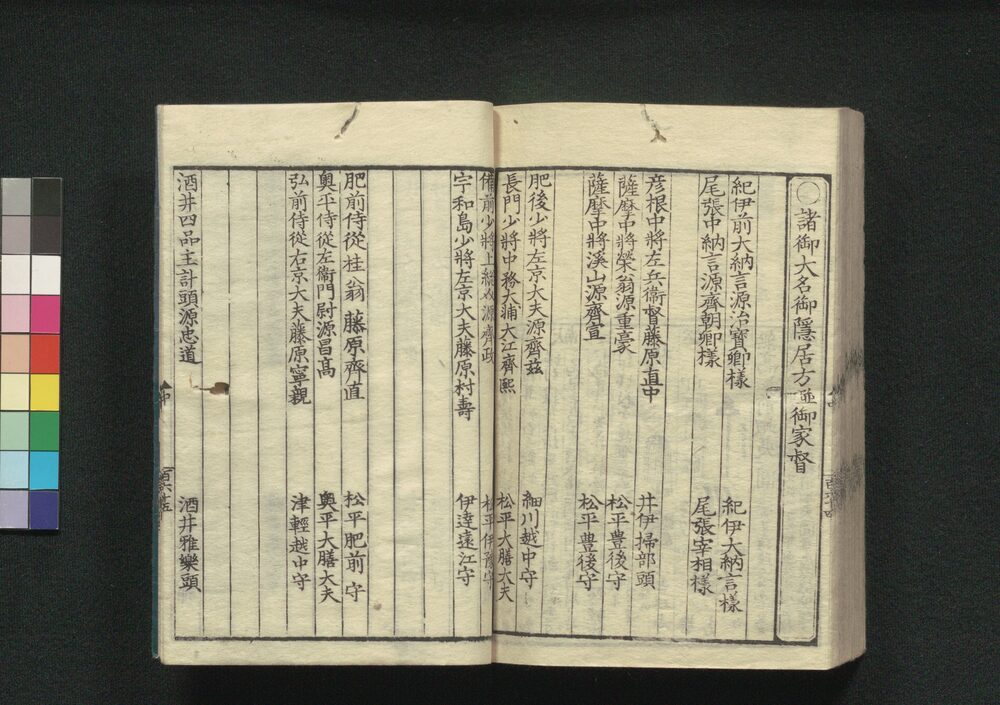 〇諸御大名御隠居方並御家督
紀伊前大納言源治寳卿様 紀伊大納言様
尾張中納言源齊朝卿様 尾張宰相様
彦根中将左兵衞督藤原直中 井伊掃部頭
薩摩中将榮翁源重豪 松平豊後守
薩摩中将溪山源齊宣 松平豊後守
肥後少将左京大夫源齊茲 細川越中守
長門少将中務大輔大江齊熙 松平大膳大夫
備前少将上総介源齊政 松平伊豫守
宇和島少将左京大夫藤原村壽 伊達遠江守
肥前侍從桂翁藤原齊直 松平肥前守
奥平侍從左衞門尉源昌高 奥平大膳大夫
弘前侍從右京大夫藤原寧親 津輕越中守
酒井四品主計頭源忠道 酒井雅樂頭